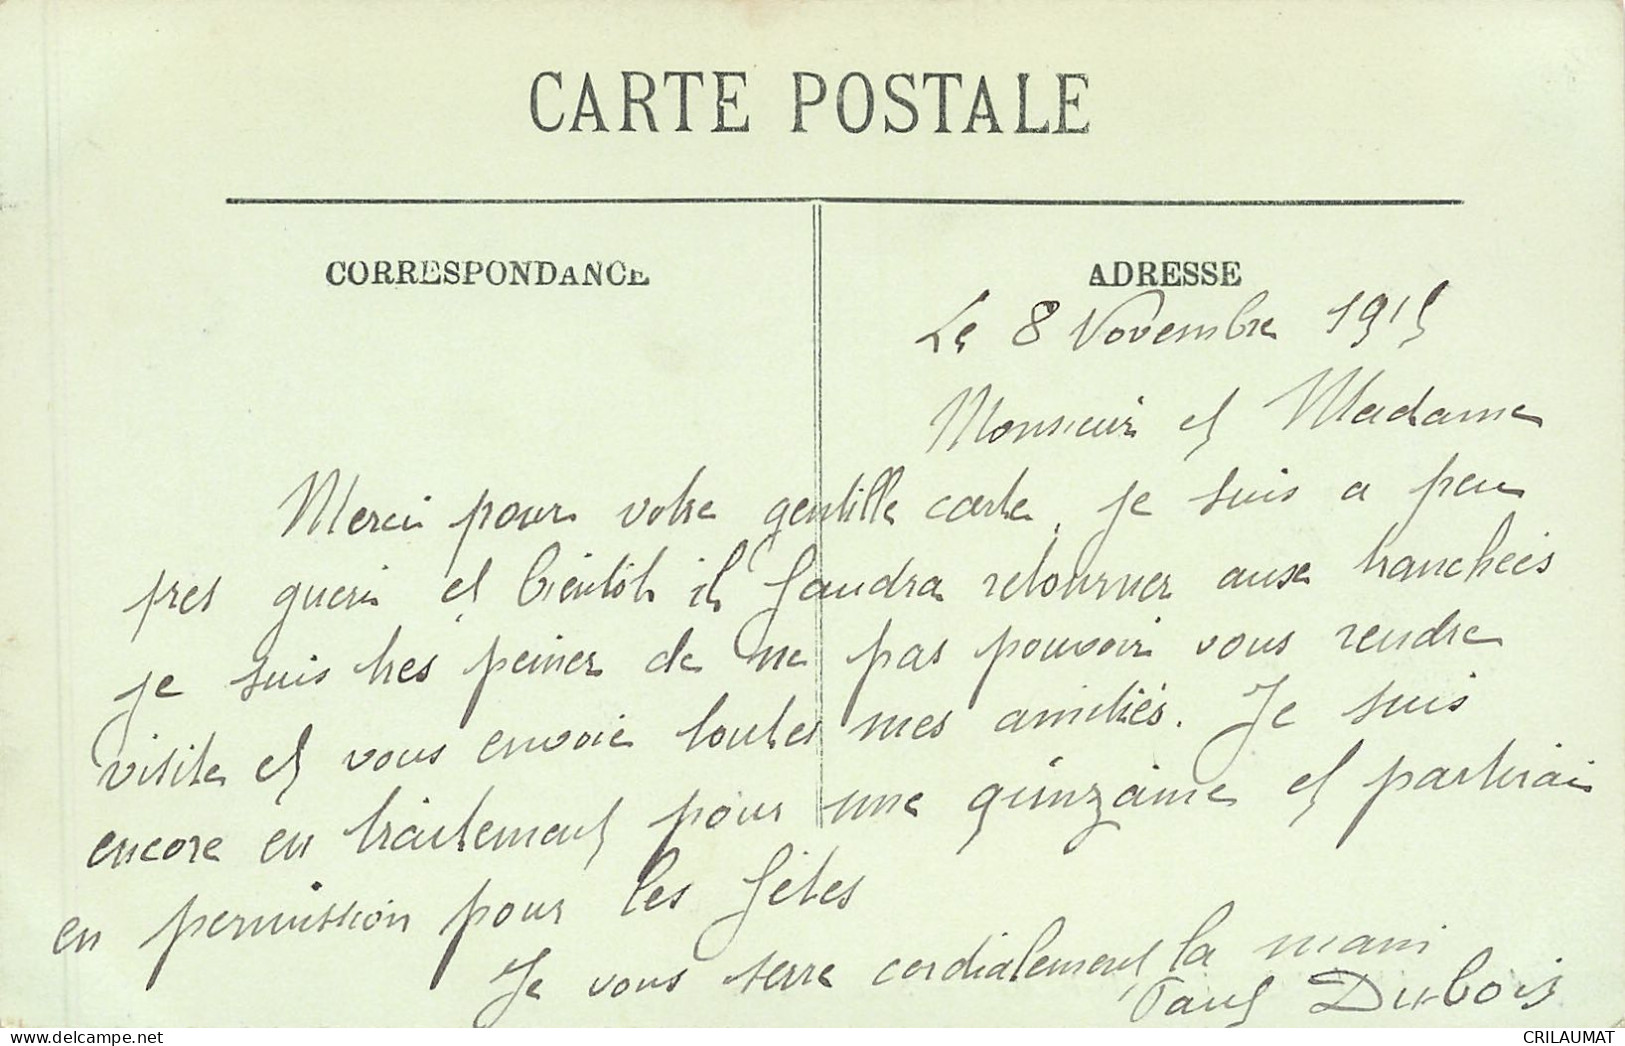 CARTE POSTALE
CORRESPONDANCE
ADRESSE
Le 8 Novembre 1915
Monsieur et Madame
Merci pour votre gentille carte. je suis a peu
pres gueri et bientôt il faudra retourner aux tranchées
je suis tres peiner de ne pas pouvoir vous rendre
visite et vous envoie toutes mes amitiés. Je suis
encore en traitement pour une quinzaine et partirai
en permission pour les fêtes
Je vous serre cordialement la main
Paul Dubois
CRILAUMAT